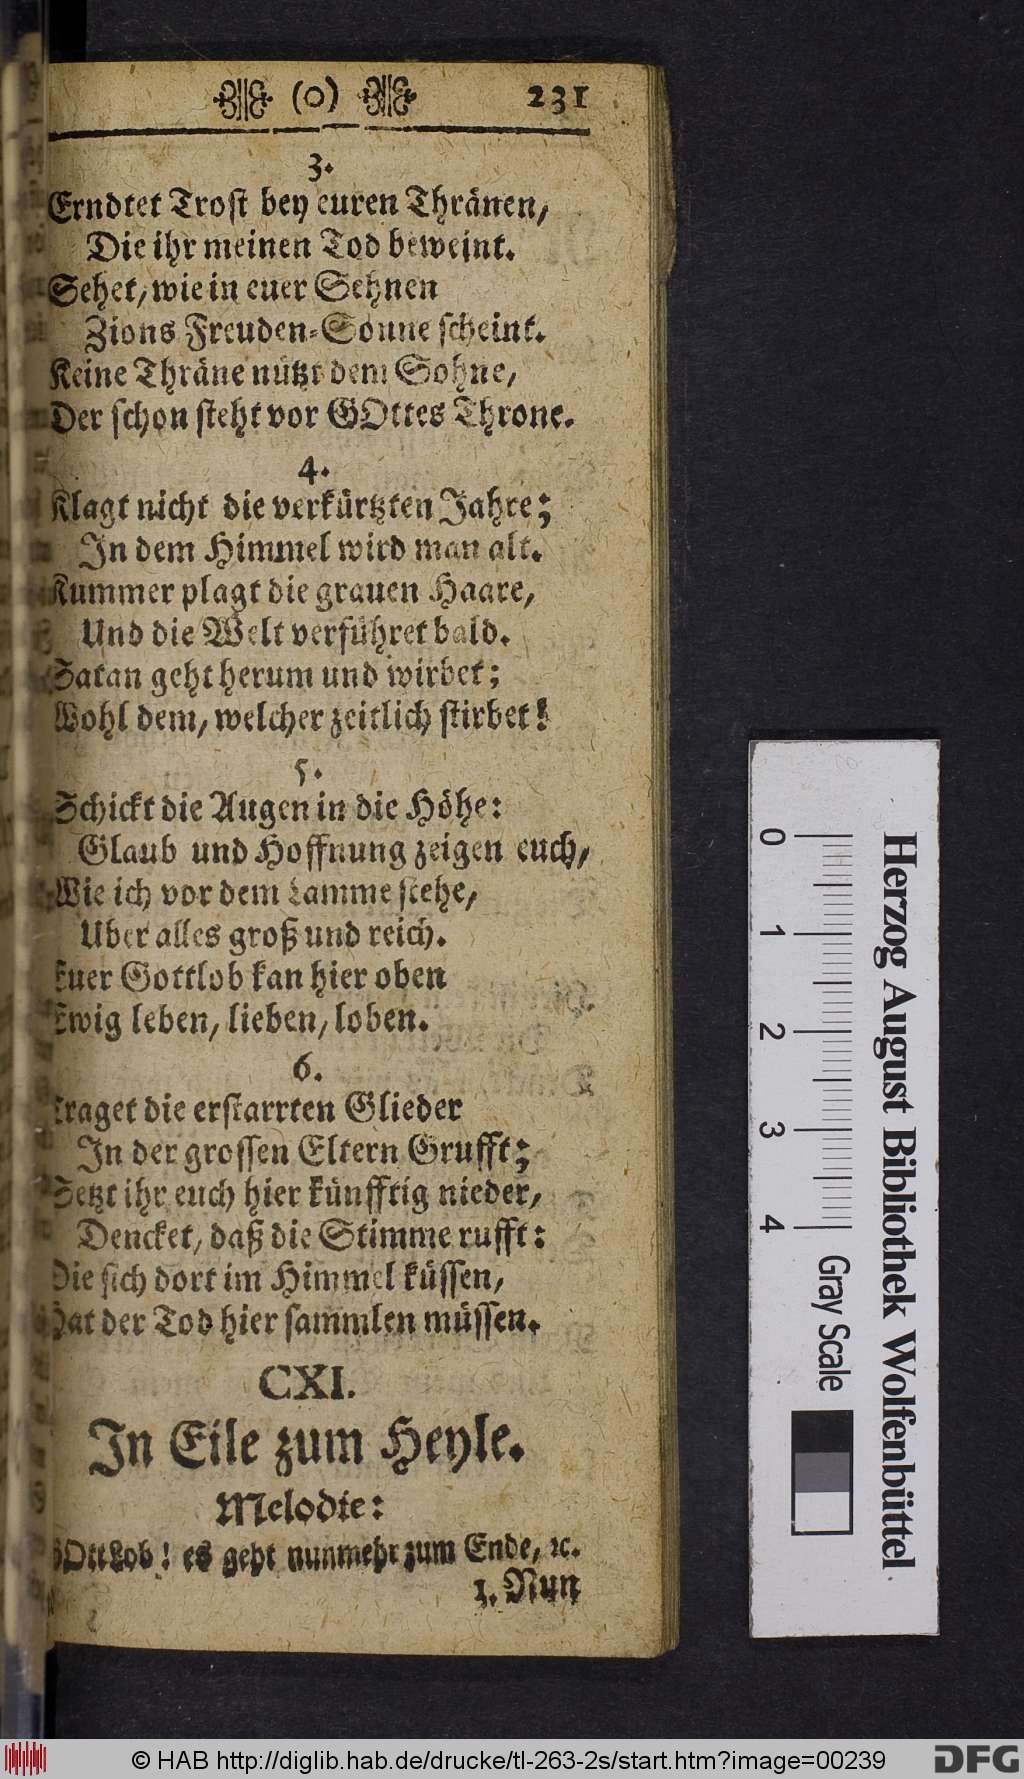 (o) 231
3.
Erndtet Trost bey euren Thränen,
Die ihr meinen Tod beweint.
Sehet, wie in euer Sehnen
Zions Freuden-Sonne scheint.
Keine Thräne nützt dem Sohne,
Der schon steht vor GOttes Throne.
4.
Klagt nicht die verkürtzten Jahre;
In dem Himmel wird man alt.
Kummer plagt die grauen Haare,
Und die Welt verführet bald.
Satan geht herum und wirbet;
Wohl dem, welcher zeitlich stirbet!
5.
Schickt die Augen in die Höhe:
Glaub und Hoffnung zeigen euch,
Wie ich vor dem Lamme stehe,
Uber alles groß und reich.
Euer Gottlob kan hier oben
Ewig leben, lieben, loben.
6.
Traget die erstarrten Glieder
In der grossen Eltern Grufft;
Setzt ihr euch hier künfftig nieder,
Dencket, daß die Stimme rufft:
Die sich dort im Himmel küssen,
Hat der Tod hier sammlen müssen.
CXI.
In Eile zum Heyle.
Melodie:
GOttLob! es geht nunmehr zum Ende, ꝛc.
1. Nun
0 1 2 3 4 Gray Scale
Herzog August Bibliothek Wolfenbüttel
© HAB http://diglib.hab.de/drucke/tl-263-2s/start.htm?image=00239
DFG